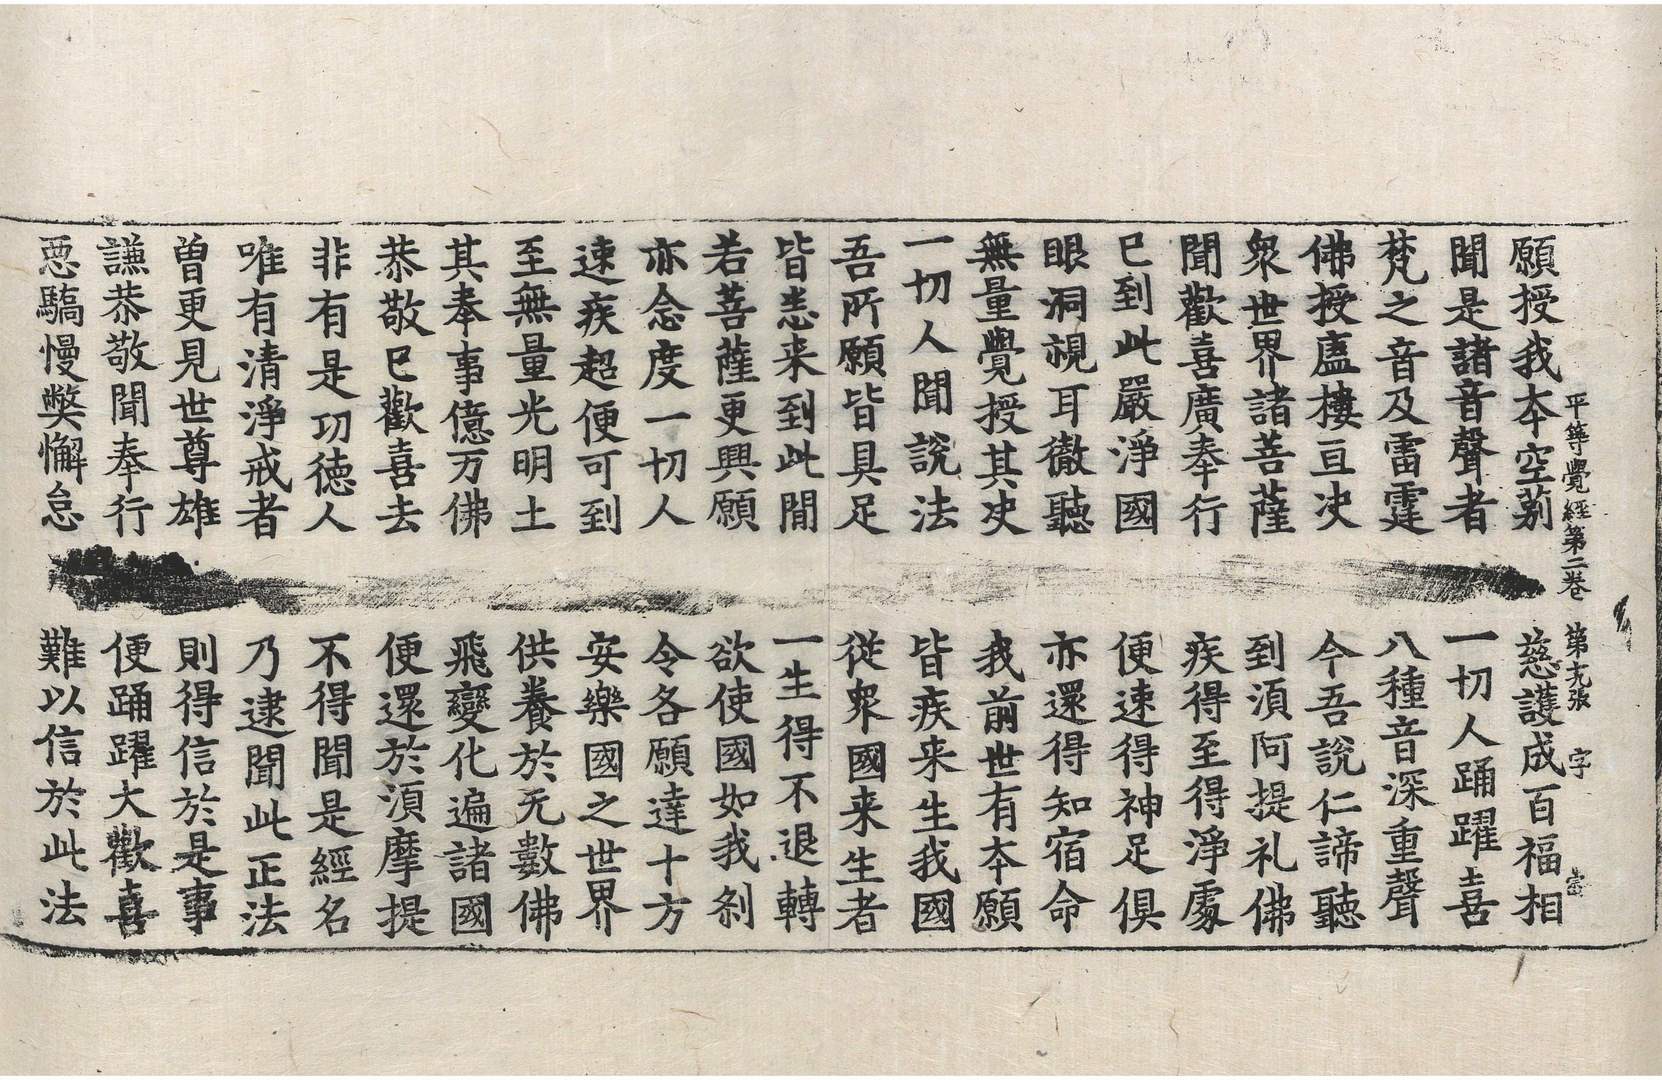 平等覺經第二卷 第張 字
願授我夲空莂 慈護成百福相
聞是諸音聲者 一切人踊躍喜
梵之音及雷霆 八種音深重聲
佛授廬樓亘决 今吾說仁諦聽
衆世界諸菩薩 到湏阿提礼佛
聞歡喜廣奉行 疾得至得淨處
已到此嚴淨國 便速得神足俱
眼洞視耳徹聽 亦還得知宿命
無量覺授其决 我前世有夲願
一切人聞說法 皆疾来生我國
吾所願皆具足 從衆國来生者
皆悉来到此間 一生得不退轉
若菩薩更興願 欲使國如我刹
亦念度一切人 令各願達十方
速疾超便可到 安樂國之世界
至無量光明土 供養於无數佛
其奉事億万佛 飛變化遍諸國
恭敬已歡喜去 便還於湏摩提
非有是功德人 不得聞是經名
唯有清淨戒者 乃逮聞此正法
曽更見世尊雄 則得信於是事
謙恭敬聞奉行 便踊躍大歡喜
惡驕慢弊懈怠 難以信於此法